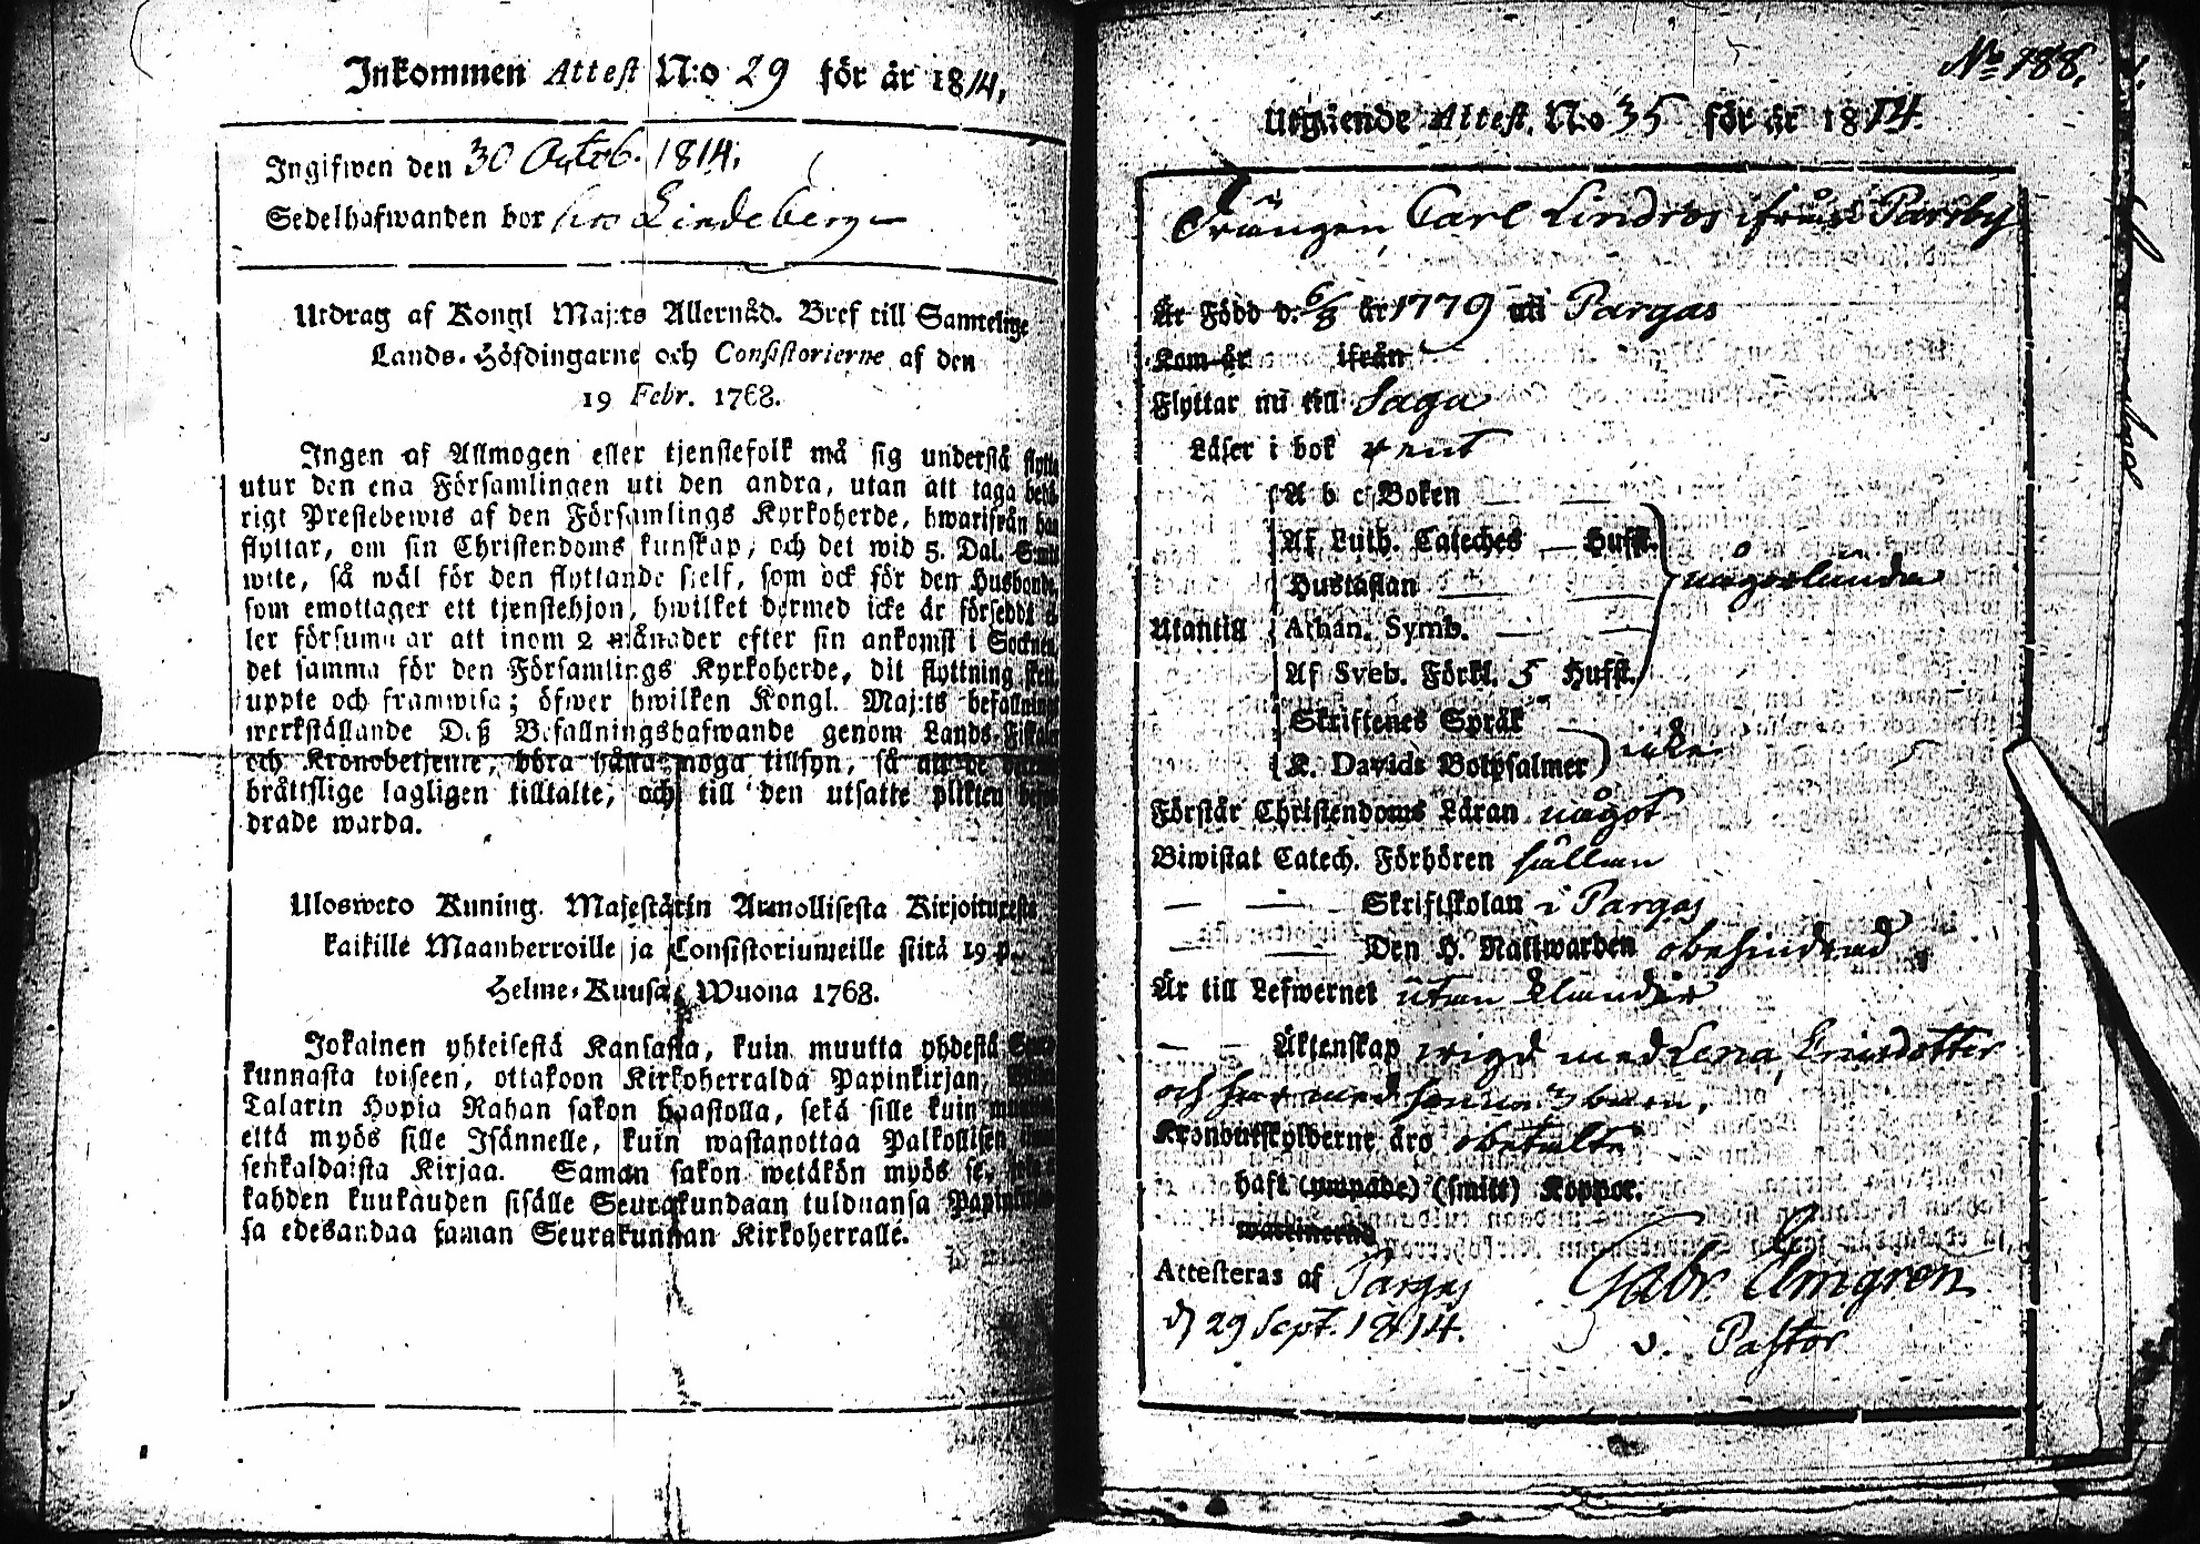 Inkommen Attest N:o 29 för år 1814,
Ingifwen den 30 Octob. 1814.
Sedelhafwanden bor hos Lindeberg
Utdrag af Kongl Maj:ts Allernåd. Bref till Samtelige
Lands-Höfdingarne och Consistorierne af den
19 Febr. 1768.
Ingen af Allmogen eller tjenstefolk må sig understå flytta
utur den ena Församlingen uti den andra, utan att taga behö-
rigt Prestebewis af den Församlings Kyrkoherde, hwarifrån han
flyttar, om sin Christendoms kunskap, och det wid 5. Dal. S:mt
wite, så wäl för den flyttande sielf, som ock för den Husbonde,
som emottager ett tjenstehjon, hwilket dermed icke är försedt el-
ler försummar att inom 2 månader efter sin ankomst i Socknen,
det samma för den Församlings Kyrkoherde, dit flyttning skett,
uppte och framwisa; öfwer hwilken Kongl. Maj:ts befallning
werkställande Deß Befallningshafwande genom Lands-Fiskaler
och Kronobetjente, böra hålla noga tillsyn, så att de
bråttslige lagligen tilltalte, och till den utsatte plikten
drade warda.
Ulosweto Kuning. Majestätin Armollisesta Kirjoituresta
kaikille Maanherroille ja Consistoriumeille siitä 19 p.
Helme-Kuusa Wuona 1768.
Jokainen yhteisestä Kansasta, kuin muutta yhdestä Seura-
kunnasta toiseen, ottakoon Kirkoherralda Papinkirjan,
Talarin Hopia Rahan sakon haastolla, sekä sille kuin
että myös sille Isännelle, kuin wastanottaa Palkollisen
senkaldaista Kirjaa. Saman sakon wetäkön myös se,
kahden kuukauden sisälle Seurakundaan tulduansa Papinkirjan-
sa edesandaa saman Seurakunnan Kirkoherralle.
No 188.
Utgående Attest. N:o 35 för år 1814.
Drängen Carl Lindros ifrån Parsby
Är Född d. 6/8 år 1779 uti Pargas
Kom år ifrån
Flyttar nu till Sagu
Läser i bok rent
A b c Boken
Af Luth. Cateches — Hufst.
Hustaflan någorlunda
Utantill Athan. Symb.
Af Sveb. Förkl. 5 Hufst.
Skriftenes Språk
K. Davids Botpsalmer icke
Förstår Christendoms Läran något
Biwistat Catech. Förhören sällan
— — Skriftskolan i Pargas
— — Den H. Nattwarden obehindrad
Är till Lefwernet utan klander
— — Äktenskap wigd med Lena Ersdotter
och har med henne 3 barn.
Kronoutskylderne äro obetalta
haft (ympade) (smitt) Koppor.
waccinerad
Attesteras af Pargas Gabr. Elmgren
d 29 Sept. 1814. v. Pastor